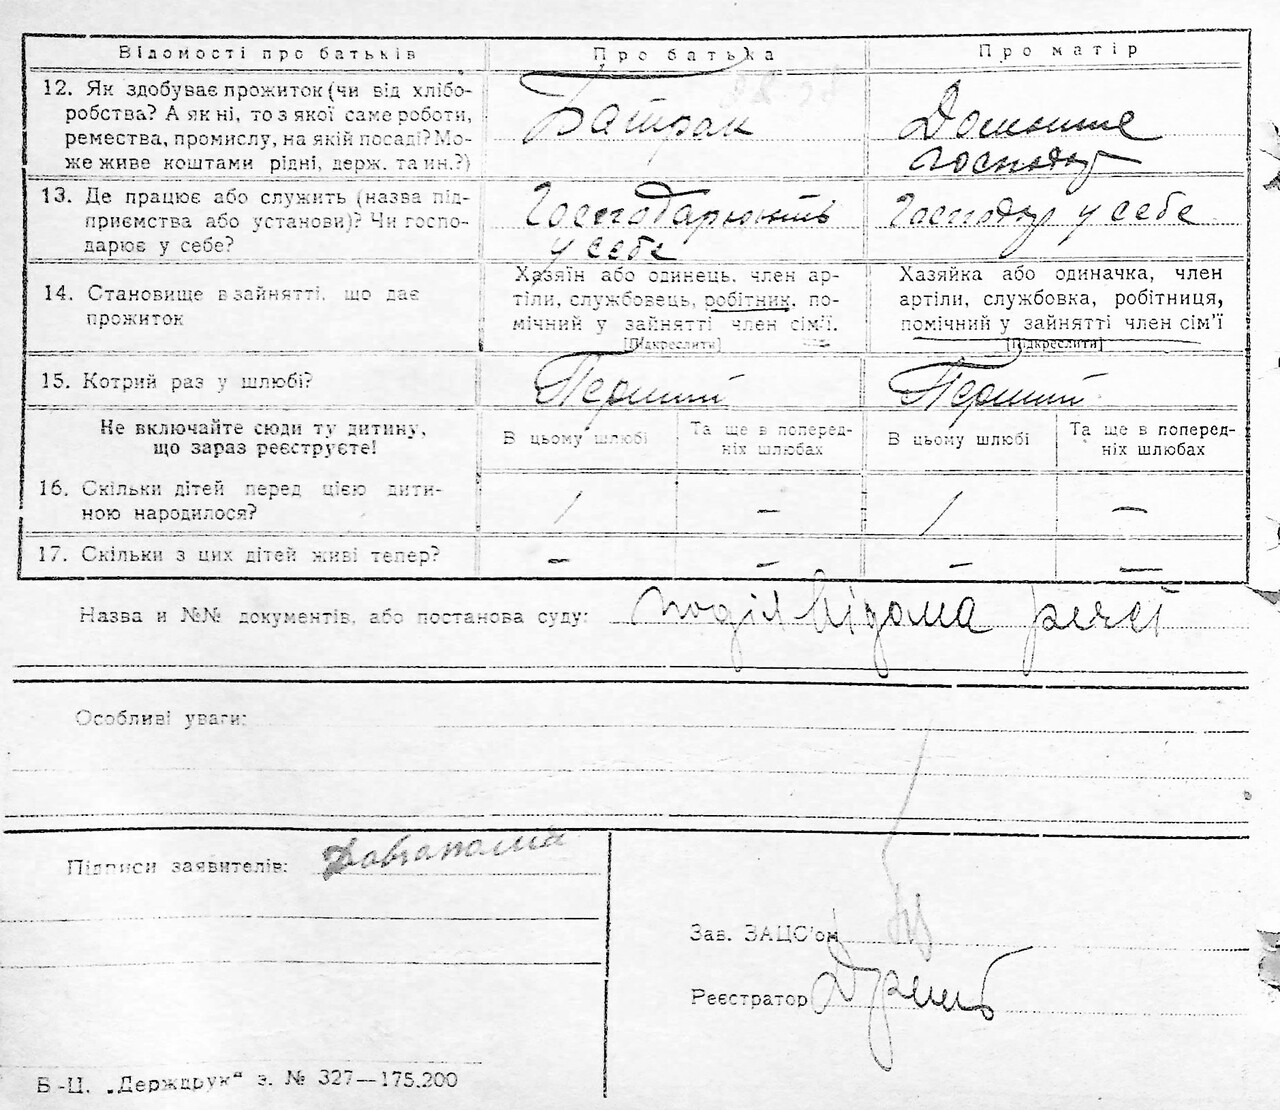 Відомості про батьків Про батька Про матір
12. Як здобуває прожиток (чи від хлібо-
робства? А як ні, то з якої саме роботи,
ремества, промислу, на якій посаді? Мо-
же живе коштами рідні, держ. та ин.?)
Батрак
Домашнє
господар
13. Де працює або служить (назва під-
приємства або установи)? Чи госпо-
дарює у себе?
Господарюють
у себе
Господар у себе
14. Становище в зайнятті, що дає
прожиток
Хазяїн або одинець, член ар-
тіли, службовець, робітник, по-
мічний у зайнятті член сім'ї.
[Підкреслити]
Хазяйка або одиначка, член
артіли, службовка, робітниця,
помічний у зайнятті член сім'ї
[Підкреслити]
15. Котрий раз у шлюбі?
Перший
Перший
Не включайте сюди ту дитину,
що зараз реєструєте!
В цьому шлюбі
Та ще в поперед-
ніх шлюбах
В цьому шлюбі
Та ще в поперед-
ніх шлюбах
16. Скільки дітей перед цією дити-
ною народилося?
1 — 1 —
17. Скільки з цих дітей живі тепер?
— — — —
Назва и №№ документів, або постанова суду: відома
Особливі уваги:
Підписи заявителів:
Зав. ЗАЦС'ом
Реєстратор
Б-Ц. „Держдрук“ з. № 327—175.200